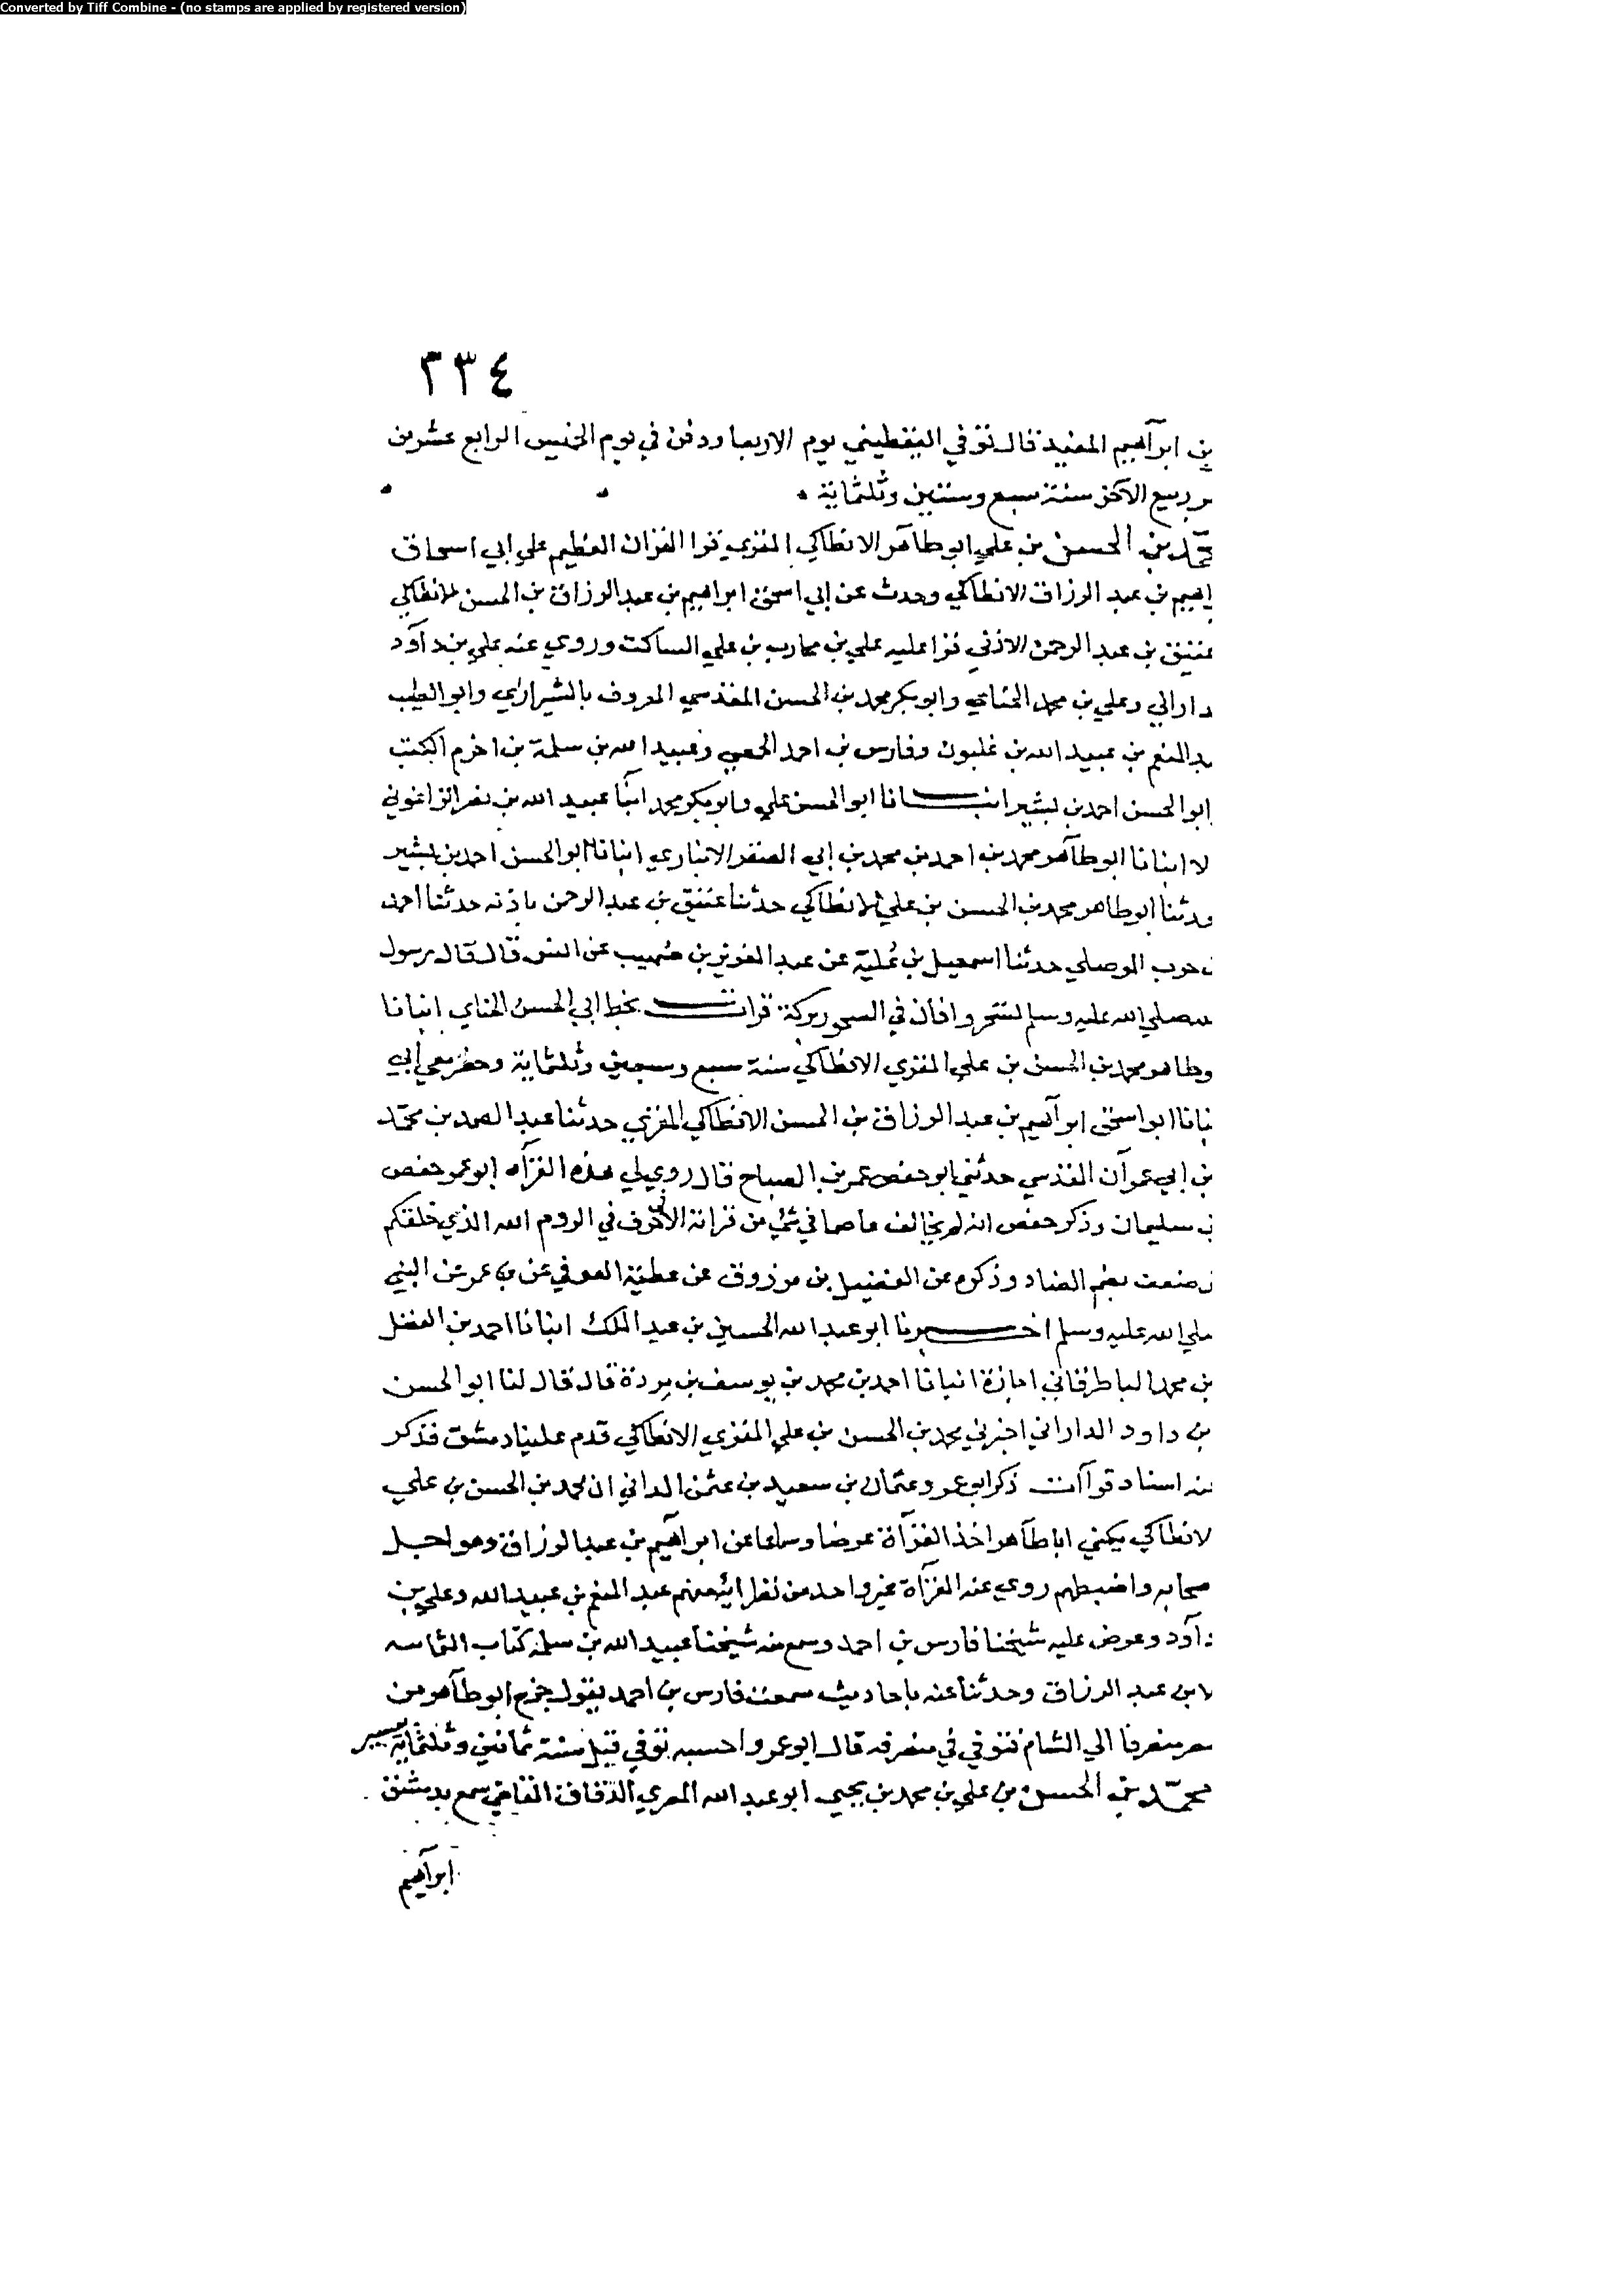 Converted by Tiff Combine - (no stamps are applied by registered version)
٣٣٤
بن ابرآهيم المفيد قال توفي اليقطيني يوم الاربعا ودفن في يوم الخميس الرابع عشر من
ربيع الآخر سنة سبع وستين وثلثماية
محمد بن الحسن بن علي ابو طاهر الانطاكي المقري قرا القران العظيم علي ابي اسحاق
اهيم بن عبد الرزاق الانطاكي وحدث عن ابي اسحق ابراهيم بن عبد الرزاق بن الحسن الانطاكي
عتيق بن عبد الرحمن الاذني قرا عليه علي بن محارب بن علي الساكت وروي عنه علي بن دآود
داراني وعلي بن محمد الحناي وابو بكر محمد بن الحسن المقدسي المعروف بالشيرازي وابو الطيب
بد المنعم بن عبيد الله بن غلبون وفارس بن احمد الحمصي وعبيد الله بن سلمة بن اخرم المكتب
ابو الحسن احمد بن بشير انبانا ابو الحسن علي وابو بكر محمد ابنا عبيد الله بن نصر الزاغوني
لا انبانا ابو طآهر محمد بن احمد بن محمد بن ابي الصقر الانباري انبانا ابو الحسن احمد بن بشير
حدثنا ابو طاهر محمد بن الحسن بن علي الانطاكي حدثنا عتيق بن عبد الرحمن باذنه حدثنا احمد
بن حرب الموصلي حدثنا اسمعيل بن عُلية عن عبد العزيز بن صهيب عن انس قال قال رسول
لله صلي الله عليه وسلم تسحروا فان في السحور بركة قرات بخط ابي الحسن الحناي انبانا
وطاهر محمد بن الحسن بن علي المقري الانطاكي سنة سبع وسبعين وثلثماية وحضر معي ابي
نبانا ابو اسحق ابرآهيم بن عبد الرزاق بن الحسن الانطاكي المقري حدثنا عبد الصمد بن محمد
بن ابي عمرآن المقدسي حدثني ابو حفص عمر بن الصباح قال روي لي هذه القرآه ابو عمر حفص
بن سليمان وذكر حفص انه لم يخالف عاصما في شي من قرانة الا في حرف في الروم الله الذي خلقكم
من ضعف بضم الضاد وذكره عن الفضيل بن مرزوق عن عطية العوفي عن بن عمر عن النبي
صلي الله عليه وسلم اخبرنا ابو عبد الله الحسين بن عبد الملك انبانا احمد بن الفضل
بن محمد الباطرقاني اجازة انبانا احمد بن محمد بن يوسف بن بردة قال قال لنا ابو الحسن
بن داود الداراني اخبرني محمد بن الحسن بن علي المقري الانطاكي قدم علينا دمشق فذكر
عنه اسناد قرآات ذكر ابو عمرو عثمان بن سعيد بن عثمن الداني ان محمد بن الحسن بن علي
لانطاكي يكني ابا طآهر اخذ القرآة عرضا وسماعا عن ابرآهيم بن عبد الرزاق وهو اجل
صحابه واضبطهم روي عنه القرآة غير واحد من نظرايه منهم عبد المنعم بن عبيد الله وعلي بن
دآود وعرض عليه شيخنا فارس بن احمد وسمع منه شيخنا عبيد الله بن سلمة كتاب الثمانيه
لابن عبد الرزاق وحدثنا عنه باحاديث سمعت فارس بن احمد يقول خرج ابو طآهر من
مصر منصرفا الي الشام فتوفي في منصرفه قال ابو عمرو احسبه توفي قبل سنة ثمانين وثلثماية بيسير
محمد بن الحسن بن علي بن محمد بن يحيي ابو عبد الله المصري الدقاق القاضي سمع بدمشق
ابرآهيم